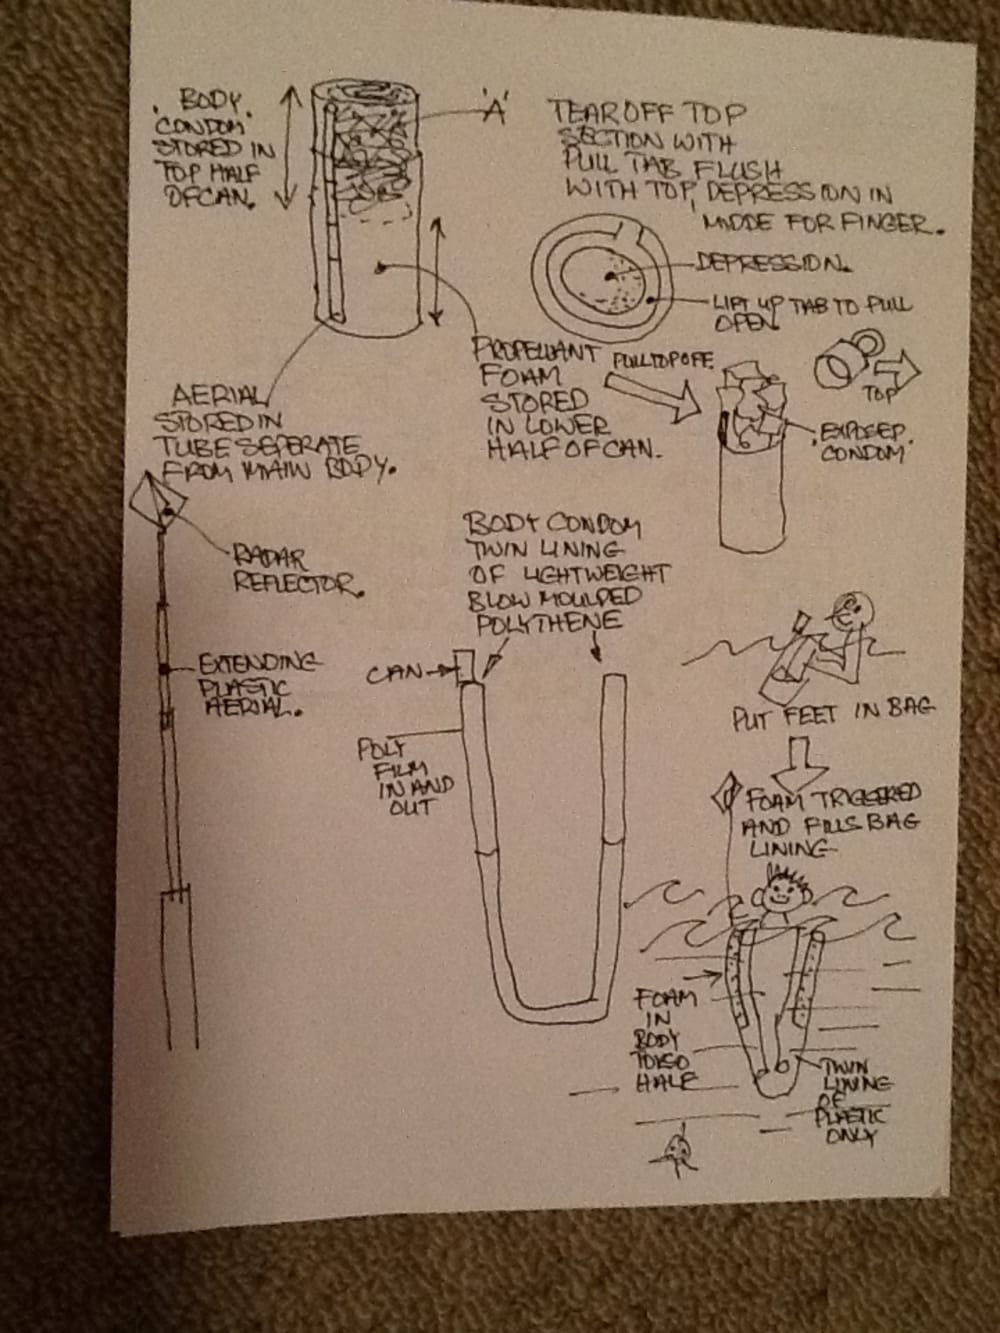 'BODY'
CONDOM'
STORED IN
TOP HALF
OF CAN.
'A'
TEAR OFF TOP
SECTION WITH
PULL TAB FLUSH
WITH TOP, DEPRESSION IN
MIDDE FOR FINGER.
DEPRESSION.
LIFT UP TAB TO PULL
OPEN
AERIAL
STORED IN
TUBE SEPERATE
FROM MAIN BODY.
PROPELLANT
FOAM
STORED
IN LOWER
HALF OF CAN.
PULL TOP OFF.
TOP
EXPOSED
'CONDOM'
RADAR
REFLECTOR.
EXTENDING
PLASTIC
AERIAL.
BODY CONDOM
TWIN LINING
OF LIGHTWEIGHT
BLOW MOULDED
POLYTHENE
CAN
POLY
FILM
IN AND
OUT
PUT FEET IN BAG
FOAM TRIGGERED
AND FILLS BAG
LINING
FOAM
IN
BODY
TORSO
HALF
TWIN
LINING
OF
PLASTIC
ONLY